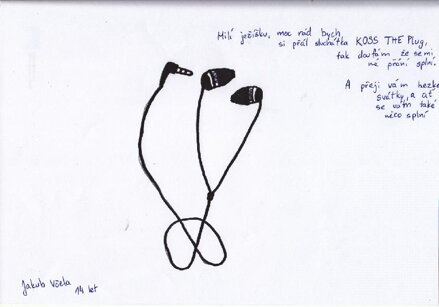 Milí ježíšku, moc rád bych
si přál sluchátka KOSS THE Plug,
tak doufám že semi
mé přání splní.
A přeji vám hezké
svátky, a ať
se vám také
něco splní
Jakub Včela
14 let